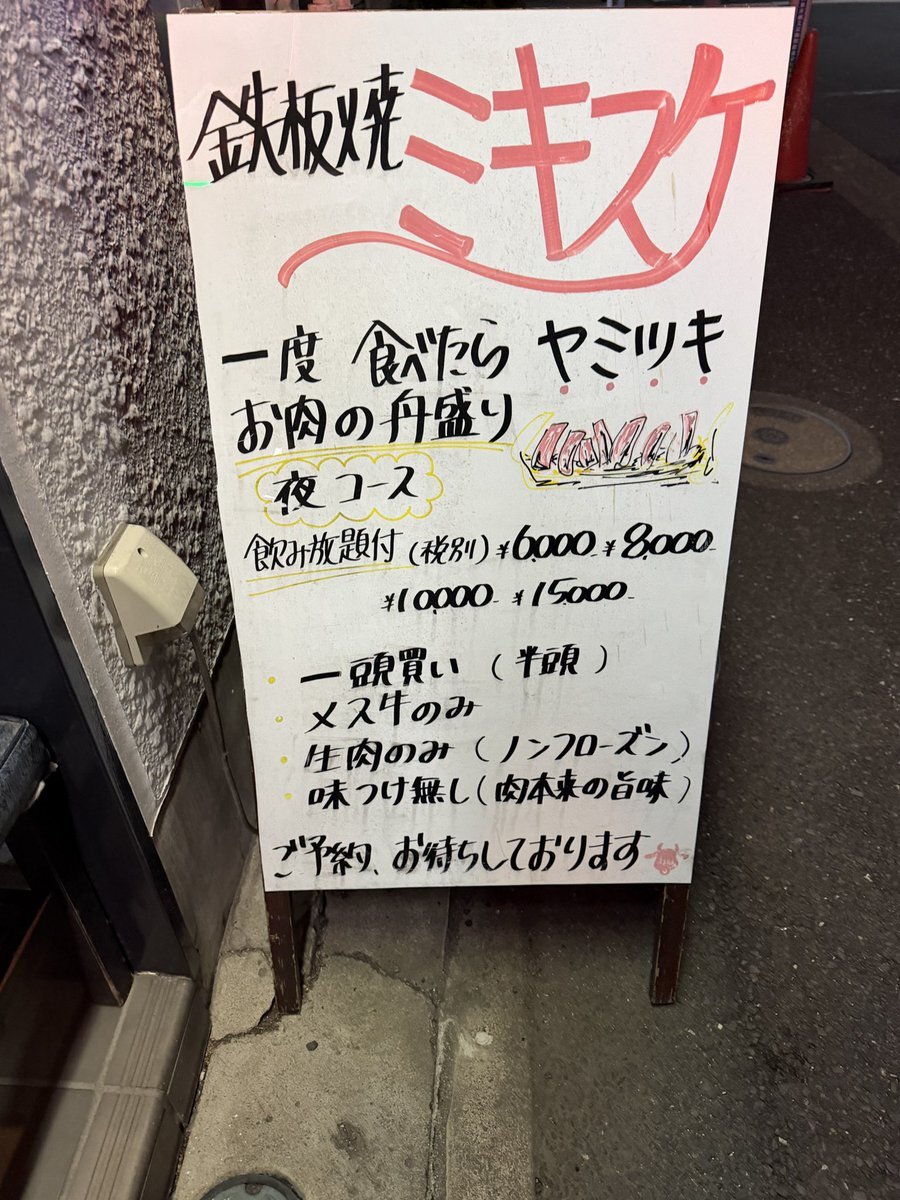 鉄板焼 ミキスケ
一度 食べたら ヤミツキ
お肉の舟盛り
夜コース
飲み放題付(税別)¥6,000-¥8,000-
¥10,000- ¥15,000-
・一頭買い(半頭)
・メス牛のみ
・生肉のみ(ノンフローズン)
・味つけ無し(肉本来の旨味)
ご予約、お待ちしております